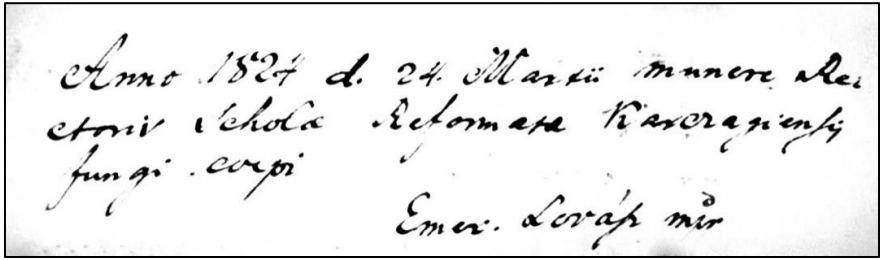 Anno 1824 d. 24. Martii munere Rec
toris Scholæ Reformatæ Karczagiensis
fungi coepi
Emer. Lovász mpr